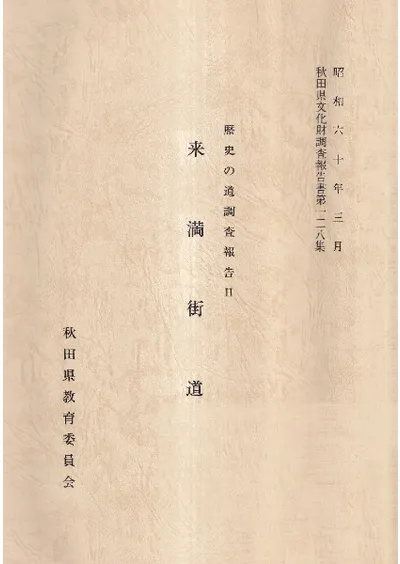 昭和六十年三月
秋田県文化財調査報告書第一二八集
歴史の道調査報告II
来満街道
秋田県教育委員会